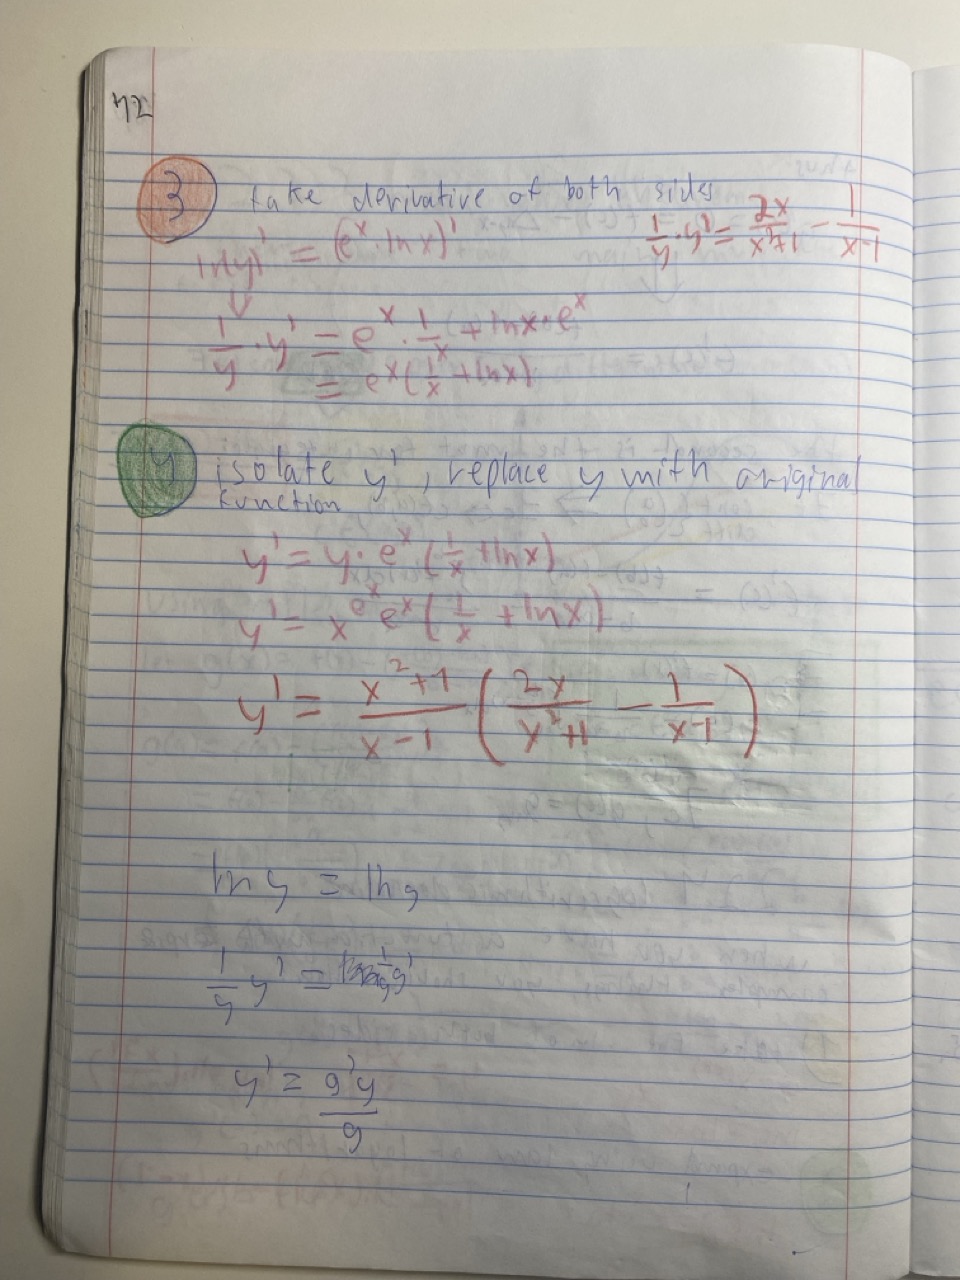 42
3 take derivative of both sides
ln(y)' = (e^x · ln x)'
1/y · y' = 2x/(x²+1) - 1/(x-1)
↓
1/y · y' = e^x · 1/x + ln x · e^x
= e^x (1/x + ln x)
4 isolate y', replace y with original
function
y' = y · e^x (1/x + ln x)
y' = x^(e^x) e^x (1/x + ln x)
y' = (x²+1)/(x-1) (2x/(x²+1) - 1/(x-1))
ln y = ln g
1/y y' = 1/g g'
y' = g'y/g